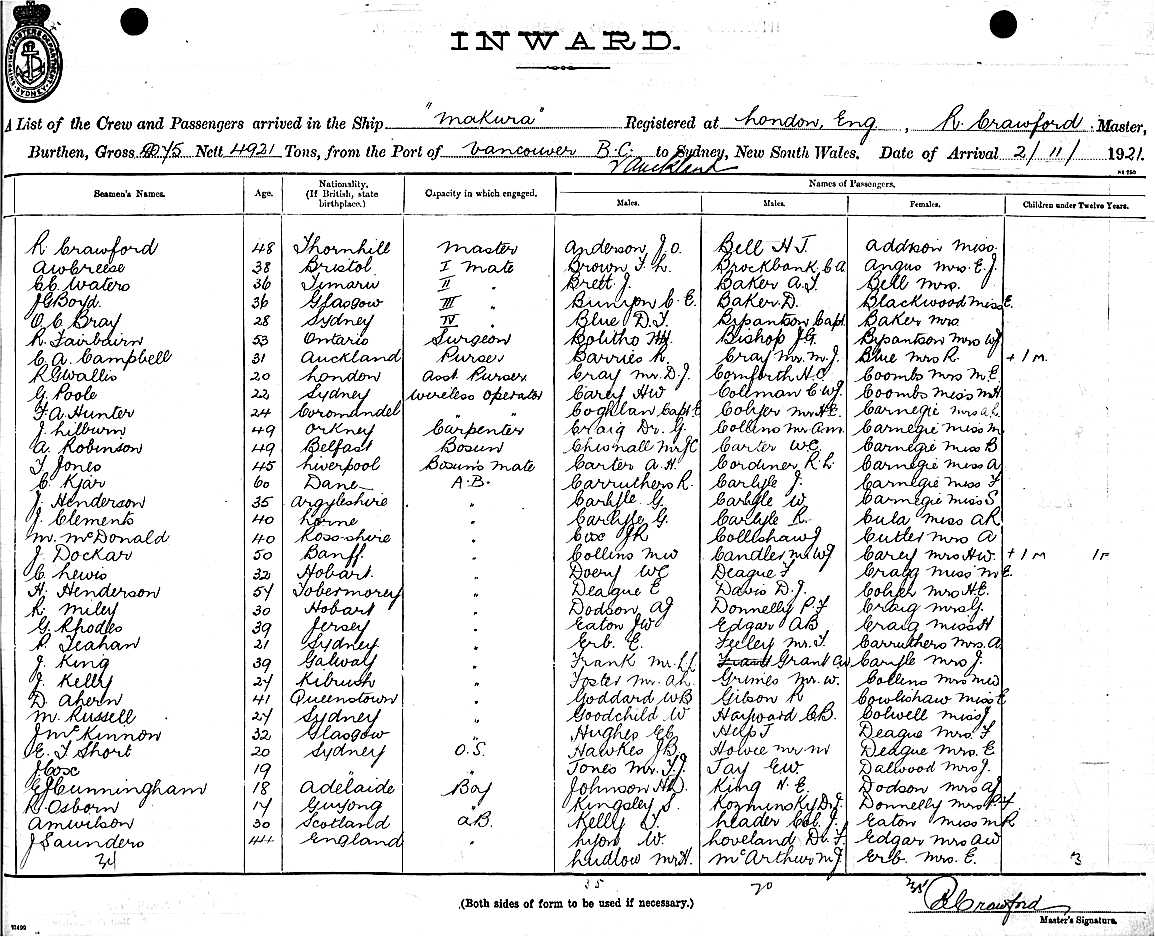 SHIPPING MASTERS DEPARTMENT SYDNEY
INWARD.
A List of the Crew and Passengers arrived in the Ship "Makura" Registered at London, Eng, R. Crawford Master,
Burthen, Gross Nett 4921 Tons, from the Port of Vancouver B.C. to Sydney, New South Wales. Date of Arrival 2/11/1921.
V Auckland
Seamen's Names. Age. Nationality. (If British, state birthplace.) Capacity in which engaged. Names of Passengers.
Males. Males. Females. Children under Twelve Years.
R Crawford 48 Thornhill Master Anderson J.O. Bell H J. Addison Miss.
A W Creese 38 Bristol I Mate Brown F. L. Brockbank C A Angus Mrs. E. J.
C C Waters 36 Timaru II " Brett J. Baker A. J Bell Mrs.
J G Boyd 36 Glasgow III " Bunyon C. E. Baker D. Blackwood Miss E.
O C Bray 28 Sydney IV " Blue D. J. Capt. Baker Mrs
R Fairbairn 53 Ontario Surgeon Bolitho Bishop J G. Mrs W J
C. A. Campbell 31 Auckland Purser Barries R. Cray Mr. M. J. Blue Mrs R. + 1 M.
R G Wallis 20 London Asst Purser Cray Mr. D. J. Cornforth H. C. Coombs Mrs M. E.
G. Poole 22 Sydney Wireless Operator Carey H W Coleman C W J. Coombs Miss M. H
F A Hunter 24 Coromandel " " Coghlan Capt E Colyer Mr H. E. Carnegie Mrs A. L.
J. Hilburn 49 Orkney Carpenter Craig Dr. G. Collins Mr A m. Carnegie Miss M
A. Robinson 49 Belfast Bosun Chisnall Mr J C Carter W E Carnegie Miss B
T Jones 45 Liverpool Bosun's Mate Carter A. H. Cordiner R. L. Carnegie Miss A
C. Kjar 60 Dane A.B. Carruthers R. Carlyle J. Carnegie Miss F
J. Henderson 35 Argyleshire " Carlyle G Carlyle W Carnegie Miss S
J. Clements 40 Lorne " Carlyle G. Carlyle R. Cula Miss A R
M. McDonald 40 Ross-shire " Cox J R Collishaw J Cutler Mrs A
J. Dockar 50 Banff. " Collins M W Candler Mr W J Carey Mrs H. W. + 1 M 1 F
C Lewis 32 Hobart " Doery W E Deague F Cragg Miss M. E.
H. Henderson 54 Tobermorey " Deague E Davis D. J. Colyer Mrs H. E.
R Miley 30 Hobart " Dodson A J Donnelly P. J Craig Mrs G.
G. Rhodes 39 Jersey " Eaton J W Edgar A B Craig Miss H
P. Teahan 21 Sydney " Erb. E. Feeley Mr. T. Carruthers Mrs. A
J. King 39 Galway " Frank Mr. Grant A W Carlyle Mrs J.
J. Kelly 27 Kilrush " Foster Mr. A L. Grimes Mr. W. Collins Mrs M W
D Ahern 41 Queenstown " Goddard W B Gitson R Cowlishaw Miss E
M. Russell 27 Sydney " Goodchild W Hayward C. B. Colwell Miss J
J McKinnon 32 Glasgow " Hughes E C Help J Deague Mrs. F
E. T Short 20 Sydney O.S. Hawkes J B. Holvec Mr M Deague Mrs. E
J. Cox 19 " " Jones Mr. F. J. Jay E W. Dalwood Mrs J.
E J Cunningham 18 Adelaide Boy Johnson H. D. King H. E. Dodson Mrs A J
R. Osborn 17 Guyong " Kingsley S. Kozminsky Dr J. Donnelly Mrs P. J
A M Wilson 30 Scotland A.B. Kelly J. Leader Col. J. Eaton Miss M R
J Saunders 44 England " Lyon W. Loveland Dr. F. Edgar Mrs A W
34 Ludlow Mr H. McArthur M. J. Erb. Mrs. E. 3
35 70
(Both sides of form to be used if necessary.)
R Crawford
Master's Signature.